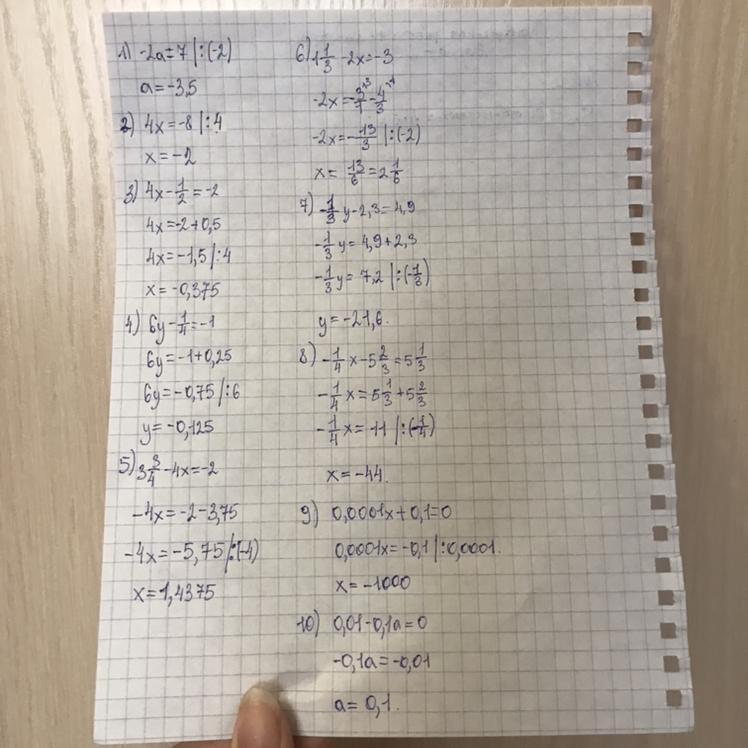 1) -2a=7 |:(-2)
a=-3,5
2) 4x=-8 |:4
x=-2
3) 4x-1/2=-2
4x=-2+0,5
4x=-1,5 |:4
x=-0,375
4) 6y-1/4=-1
6y=-1+0,25
6y=-0,75 |:6
y=-0,125
5) 3 3/4-4x=-2
-4x=-2-3,75
-4x=-5,75 |:(-4)
x=1,4375
6) 1 1/3-2x=-3
-2x=-3/1-4/3
-2x=-13/3 |:(-2)
x=13/6=2 1/6
7) -1/3 y-2,3=4,9
-1/3 y=4,9+2,3
-1/3 y=7,2 |:(-1/3)
y=-21,6.
8) -1/4 x-5 2/3=5 1/3
-1/4 x=5 1/3+5 2/3
-1/4 x=11 |:(-1/4)
x=-44.
9) 0,0001x+0,1=0
0,0001x=-0,1 |:0,0001.
x=-1000
10) 0,01-0,1a=0
-0,1a=-0,01
a=0,1.